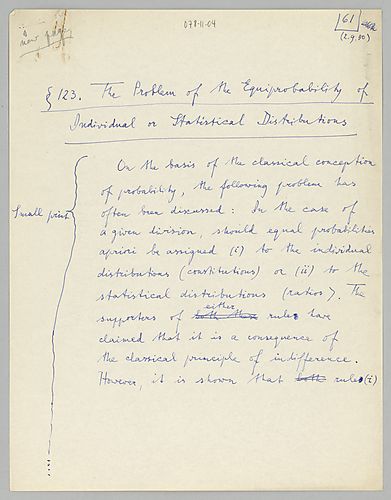 new page
078-11-04
61
(2.9.80)
§ 123. The Problem of the Equiprobability of
Individual or Statistical Distributions
Small print
On the basis of the classical conception
of probability, the following problem has
often been discussed: In the case of
a given division, should equal probabilities
apriori be assigned (i) to the individual
distributions (constitutions) or (ii) to the
statistical distributions (ratios). The
either
supporters of both these rules have
claimed that it is a consequence of
the classical principle of indifference.
However, it is shown that both rules (i)